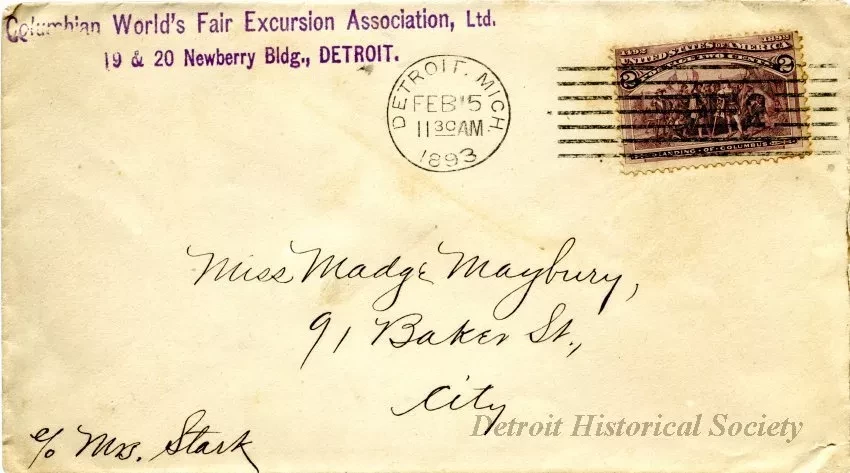 Columbian World's Fair Excursion Association, Ltd.
19 & 20 Newberry Bldg., DETROIT.
DETROIT, MICH.
FEB 15
11 30 AM
1893
1492 1892
UNITED STATES OF AMERICA
POSTAGE TWO CENTS
2 2
LANDING OF COLUMBUS
Miss Madge Maybury,
91 Baker St.,
City
c/o Mrs. Stark
Detroit Historical Society